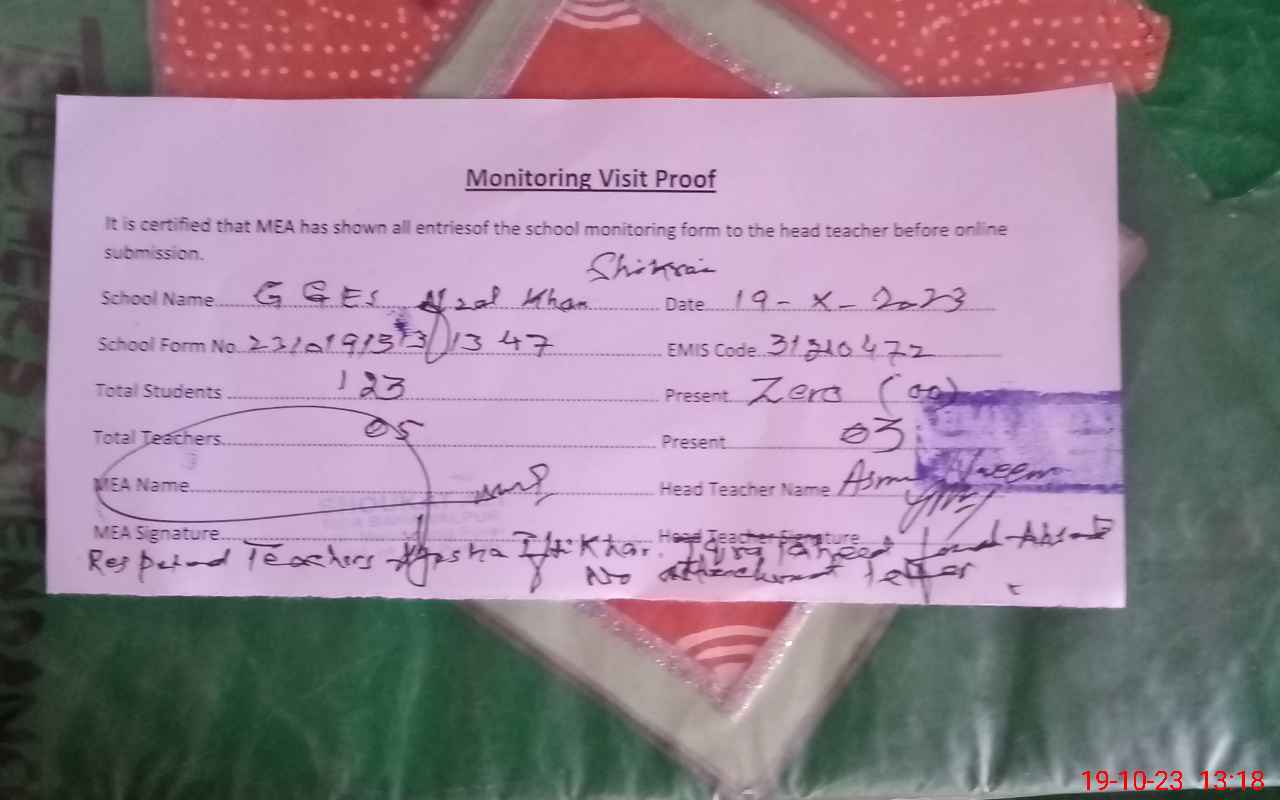 Monitoring Visit Proof
It is certified that MEA has shown all entriesof the school monitoring form to the head teacher before online
submission.
School Name G GES Afzal Khan Date 19-X-2023
School Form No. EMIS Code 31210472
Total Students 123 Present Zero (00)
Total Teachers 05 Present 03
MEA Name Head Teacher Name Asma Naeem
MEA Signature Head Teacher Signature
Teachers Iftikhar found Absent
No letter
19-10-23 13:18